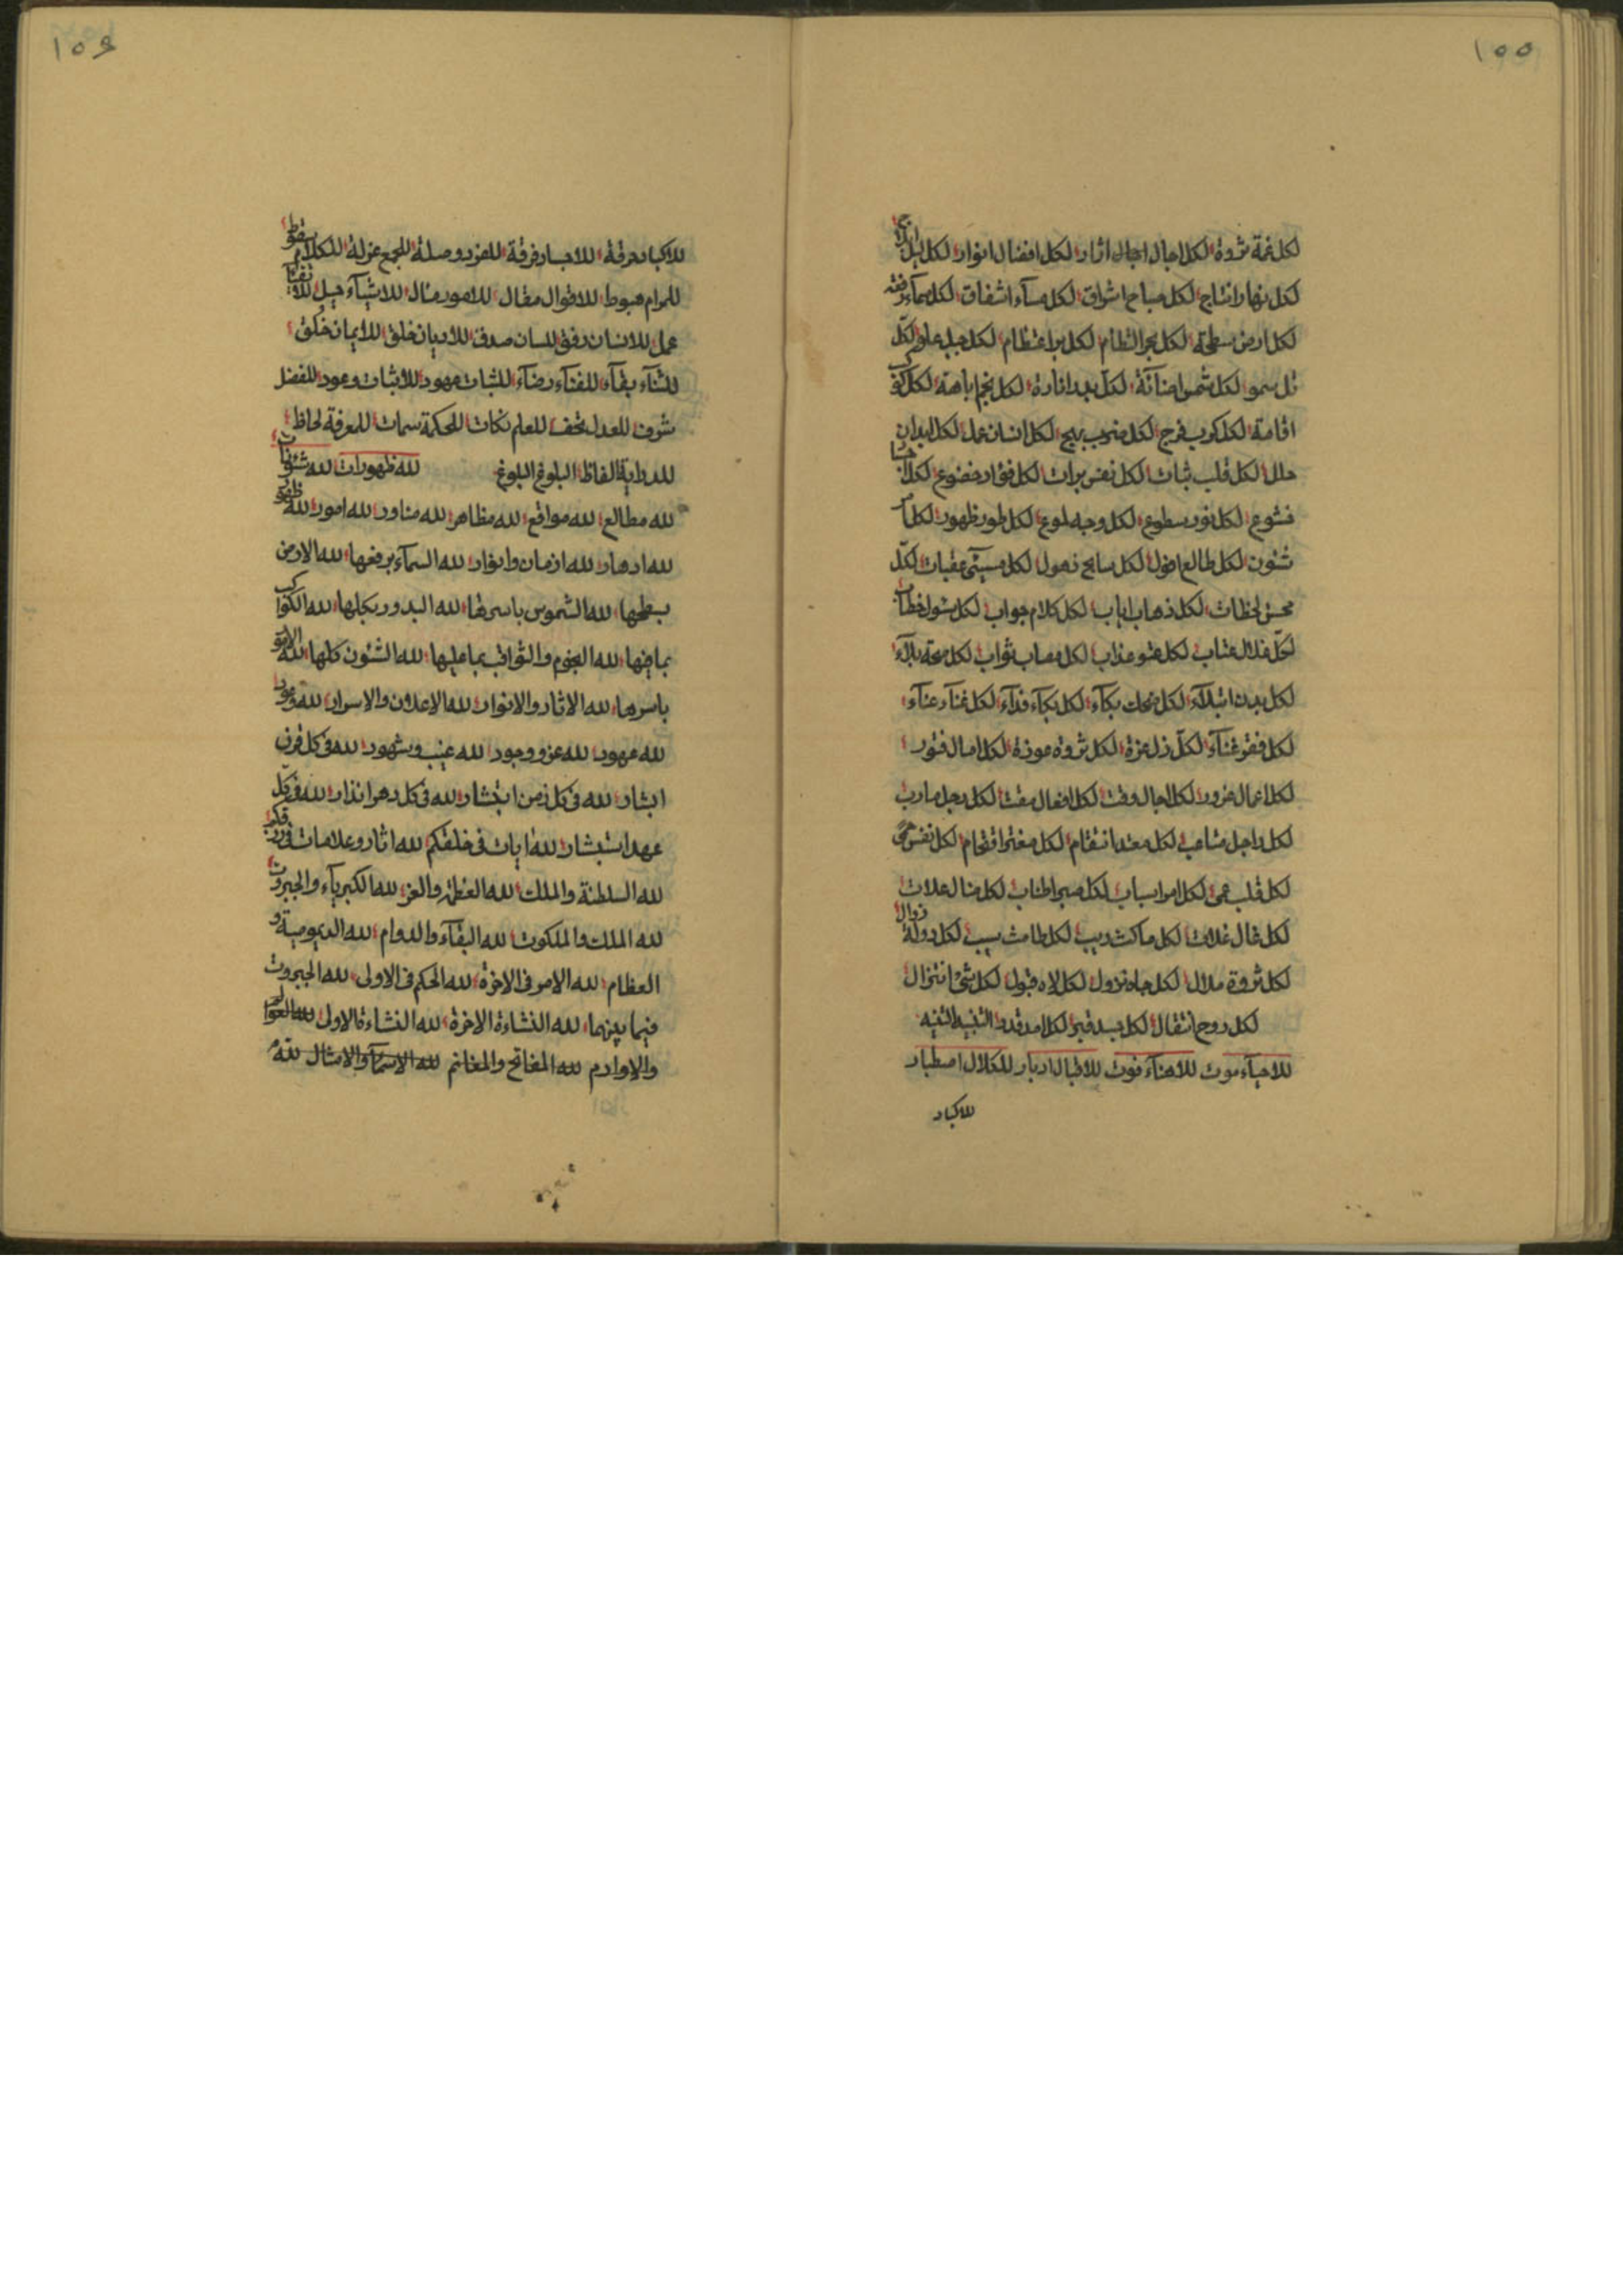 ١٥٥
لكل غمة ثروة لكل اجال اجال اثار لكل افضال انوار لكل ليل
لكل نهار انتاج لكل صباح اشراق لكل مساء اشفاق لكل سماء رفعة
لكل ارض سطحة لكل بحر التظام لكل بر اعتظام لكل جبل علو لكل
تل سمو لكل شمس اضائة لكل بدر انارة لكل نجم اباهة لكل
اقامة لكل كرب فرج لكل ضرب بهج لكل انسان عمل لكل ابدان
حلل لكل قلب ثبات لكل نفس برات لكل فؤاد خضوع لكل
خشوع لكل نور سطوع لكل وجه لموع لكل طور ظهور لكل
شئون لكل طالع افول لكل سابح ذهول لكل مسيئ عقبات لكل
محسن لحظات لكل ذهاب اياب لكل كلام جواب لكل سئول خطاب
لكل ضلال عتاب لكل عتو عذاب لكل مصاب ثواب لكل صحة بلاء
لكل بدن ابتلاء لكل ضحك بكاء لكل بكاء فداء لكل غناء عناء
لكل فقر غناء لكل ذل عزة لكل ثروة عوزة لكل امال فتور
لكل اعمال غرور لكل اجال وقت لكل افعال مقت لكل رجل مارب
لكل راجل متاعب لكل معتد انتقام لكل مغتر اقتحام لكل نفس
لكل قلب عمى لكل امر اسباب لكل صبر اطناب لكل منال علات
لكل غال غلات لكل ماكث دبيب لكل طامث سبب لكل دولة زوال
لكل ثروة ملال لكل جاه نزول لكل لاه قبول لكل شئ انتزال
لكل روح انتقال لكل جسد قبر لكل امد قدر التنبيه التنبيه
للاحياء موت للاهناء فوت للاقبال ادبار للكلال اصطبار
للاكباد
١٥٦
للاكباد حرقة للاحباء فرقة للفرد وصلة للجمع عزلة للكلام سقوط
للمرام هبوط للاقوال مقال للامور منال للاشياء حيل
عمل للانسان رفق للسان صدق للاديان خلق للايمان خلق
للثناء بقاء للفناء رضاء للثبات عهود للاثبات وعود للفضل
شرف للعدل تحف للعلم نكات للحكمة سمات للمعرفة لحاظ
للدراية الفاظ البلوغ البلوغ لله ظهورات لله شئونات
لله مطالع لله مواقع لله مظاهر لله مناور لله امور لله
لله ادهار لله ازمان وادوار لله السماء برفعها لله الارض
بسطحها لله الشموس باسرها لله البدور بكلها لله الكواكب
بما فيها لله النجوم والثواقب بما عليها لله الشئون كلها لله الامور
باسرها لله الاثار والانوار لله الاعلان والاسرار لله وعود
لله عهود لله عز ووجود لله غيب وشهود لله فى كل قرن
ابشار لله فى كل زمن ابتشار لله فى كل دهر انذار لله فى كل
عهد استبشار لله ايات فى خلقكم لله اثار وعلامات فى رزقكم
لله السلطنة والملك لله العظمة والعز لله الكبرياء والجبروت
لله الملك والملكوت لله البقاء والدوام لله الديمومية و
العظام لله الامر فى الاخرة لله الحكم فى الاولى لله الجبروت
فيما بينهما لله النشاءة الاخرة لله النشاءة الاولى لله العوالم
والاوادم لله المفاتح والمغانم لله الاسماء والامثال لله